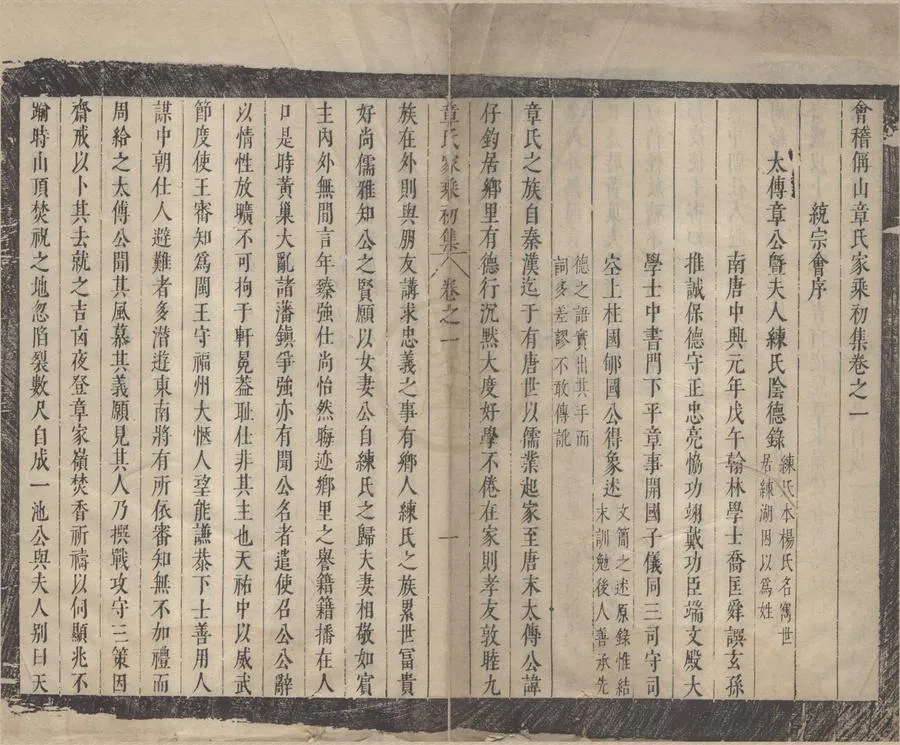 會稽偁山章氏家乘初集卷之一
統宗會序
太傅章公曁夫人練氏陰德錄
練氏本楊氏名寯世
居練湖因以爲姓
南唐中興元年戊午翰林學士喬匡舜譔玄孫
推誠保德守正忠亮恊功翊戴功臣端文殿大
學士中書門下平章事開國子儀同三司守司
空上柱國郇國公得象述
文簡之述原錄惟結
末訓勉後人善承先
德之語實出其手而
詞多差謬不敢傳訛
章氏之族自秦漢迄于有唐世以儒業起家至唐末太傅公諱
仔鈞居鄉里有德行沉默大度好學不倦在家則孝友敦睦九
章氏家乘初集
卷之一
一
族在外則與朋友講求忠義之事有鄉人練氏之族累世富貴
好尚儒雅知公之賢願以女妻公自練氏之歸夫妻相敬如賓
主內外無間言年臻強仕尚怡然晦迹鄉里之譽籍籍播在人
口是時黃巢大亂諸藩鎮爭強亦有聞公名者遣使召公公辭
以情性放曠不可拘于軒冕葢耻仕非其主也天祐中以威武
節度使王審知爲閩王守福州大愜人望能謙恭下士善用人
謀中朝仕人避難者多潛遊東南將有所依審知無不如禮而
周給之太傅公聞其風慕其義願見其人乃撰戰攻守三策因
齋戒以卜其去就之吉凶夜登章家嶺焚香祈禱以伺顯兆不
踰時山頂焚祝之地忽陷裂數尺自成一池公與夫人别曰天